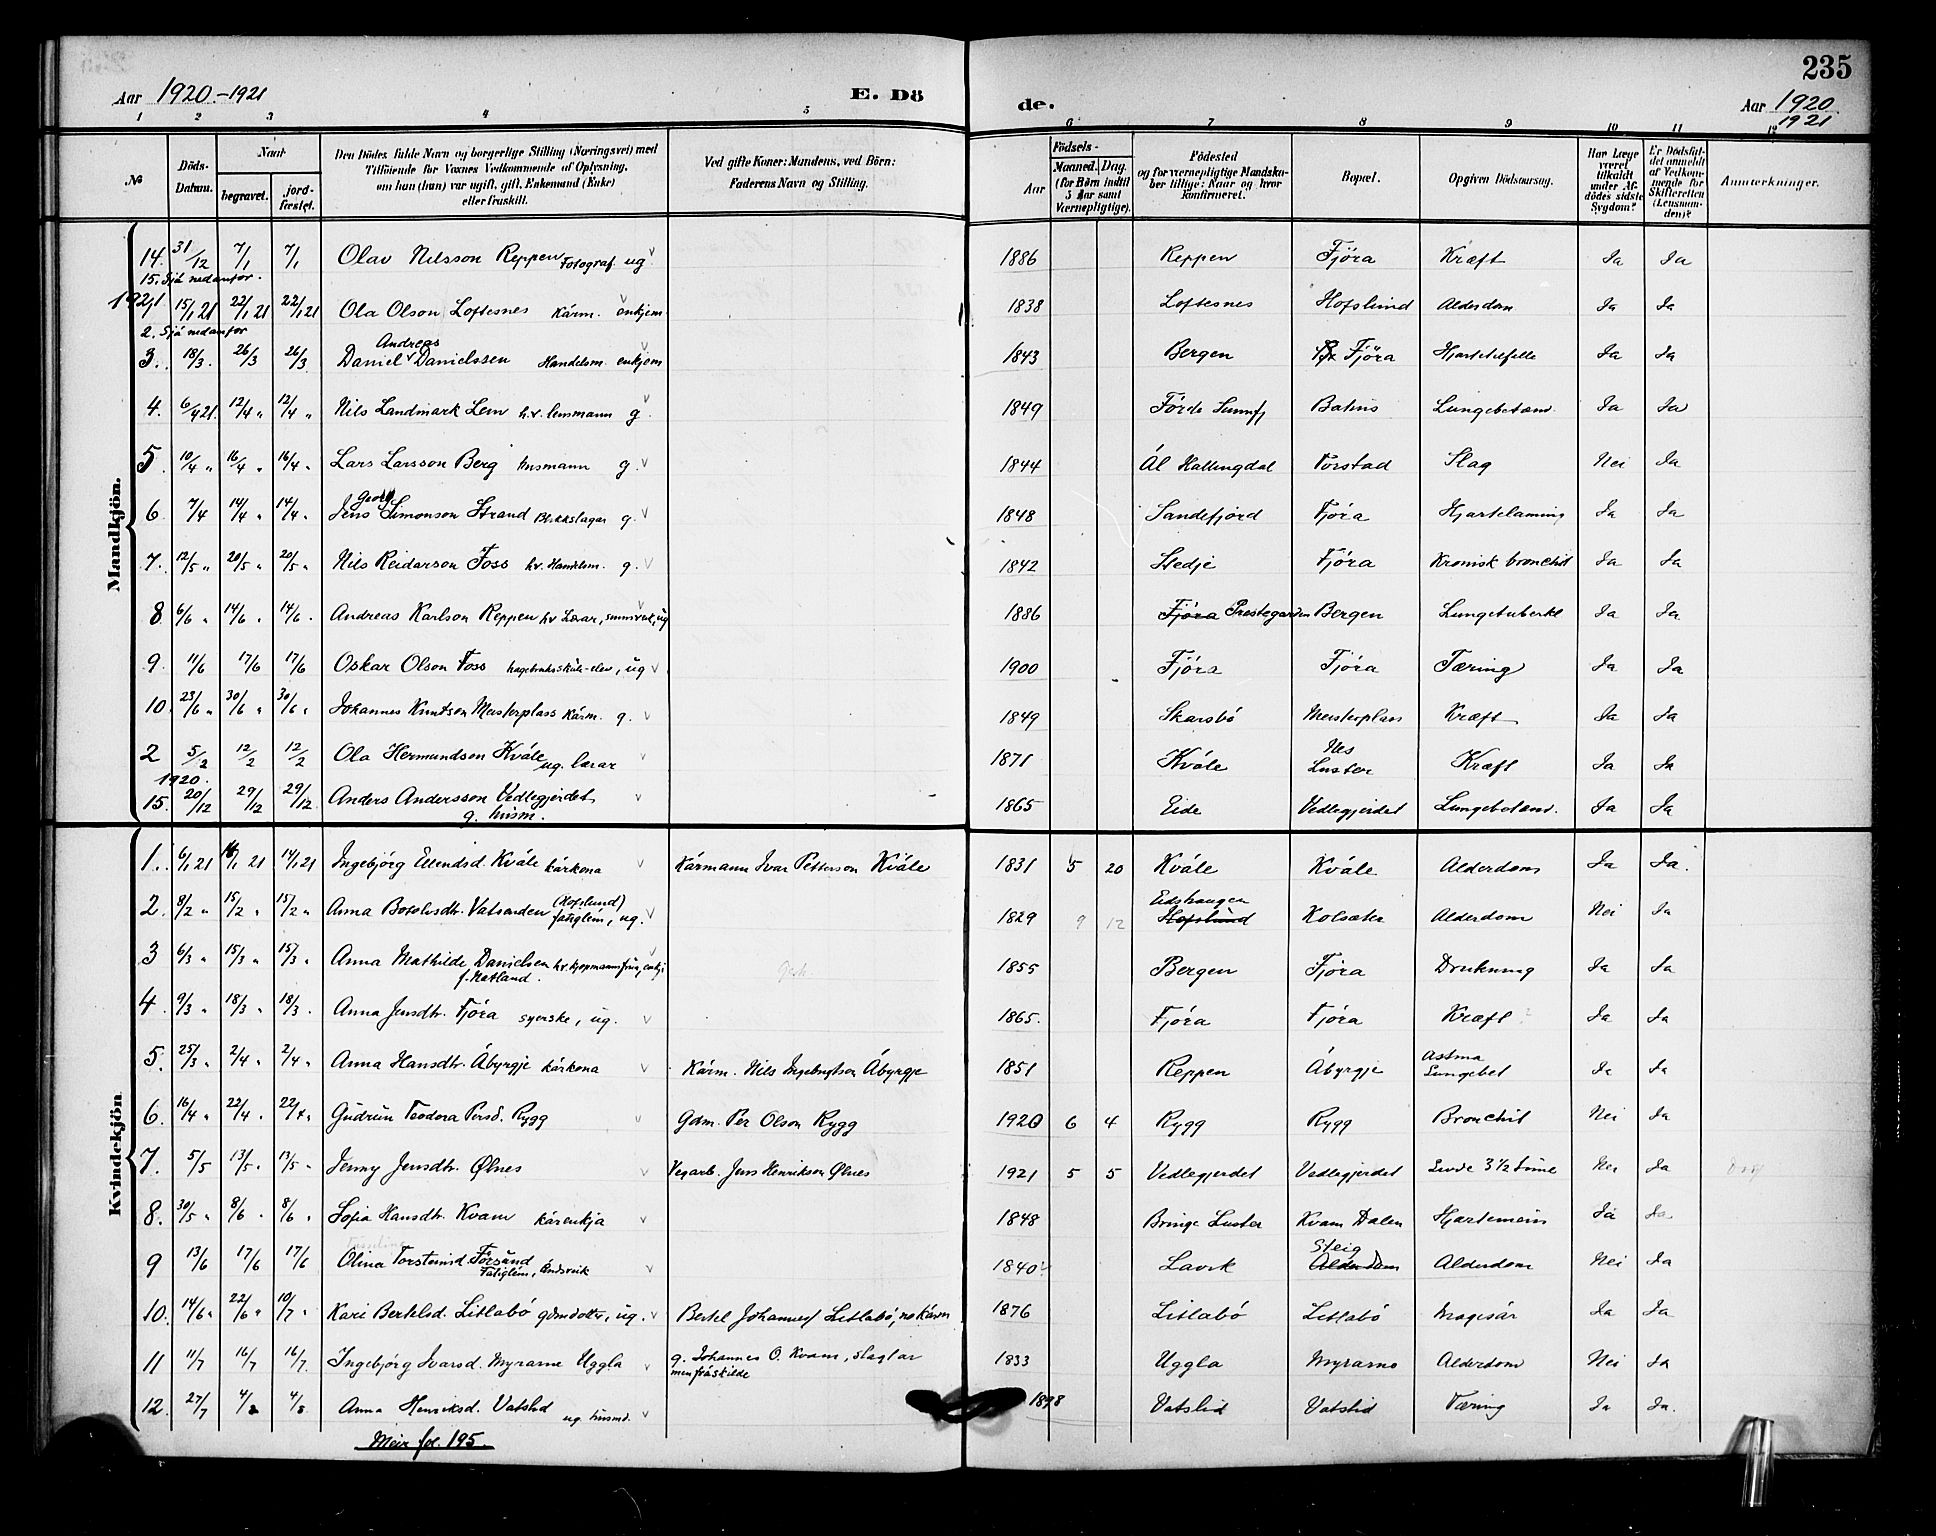 235
Aar 1920-1921 E. Dö de. Aar 1920 1921
1 2 3 4 5 6 7 8 9 10 11 12
№ Döds-Datum. Naar begravet. jord-fæstet. Den Dödes fulde Navn og borgerlige Stilling (Næringsvei) med Tilföiende for Voxnes Vedkommende af Oplysning, om han (hun) var ugift, gift, Enkemand (Enke) eller fraskilt. Ved gifte Koner: Mandens, ved Börn: Faderens Navn og Stilling. Födsels- Aar Maaned. Dag. (for Börn indtil 5 Aar samt Værnepligtige). Födested og for værnepligtige Mandskaber tillige: Naar og hvor konfirmeret. Bopæl. Opgiven Dödsaarsag. Har Læge været tilkaldt under Afdödes sidste Sygdom? Er Dödsfaldet anmeldt af Vedkommende for Skifteretten (Lensmanden)? Anmærkninger.
Mandkjön.
14. 31/12 7/1 7/1 Olav Nilsson Reppen Fotograf ug 1886 Reppen Fjöra Kræft Ja Ja
15. Sjå nedanfor.
1921 1. 15/1 21 22/1 21 22/1 21 Ola Olson Loftesnes Kårm. enkjem. 1838 Loftesnes Hofslund Alderdom Ja Ja
2. Sjå nedanfor
3. 18/3. 26/3 26/3 Daniel Andreas Danielssen Handelsm. enkjem 1843 Bergen Fjöra Hjartefeile Ja Ja
4. 6/4 21. 12/4 " 12/4 " Nils Landmark Lem h.v. lensmann g. 1849 Förde Sunnfj Bahus Lungebetænd. Ja Ja
5 10/4 " 16/4 " 16/4 " Lars Larsson Berg husmann g. 1844 Ål Hallingdal Torstad Slag Nei Ja
6 7/4 14/4 " 14/4 " Jens Georg Simonson Strand Blikkslagar g. 1848 Sandefjord Fjöra Hjartelaming Ja Ja
7. 12/5 " 20/5 " 20/5 " Nils Reidarson Foss h.v. Handelsm. g. 1842 Stedje Fjöra Kronisk bronchit Ja Ja
8 6/6 " 14/6 " 14/6 " Andreas Karlson Reppen h.v. Lærar, ug 1886 Fjöra Prestegarden Bergen Lungetuberkl Ja Ja
9. 11/6 17/6 17/6 Oskar Olson Foss hagebruksskule-elev, ug 1900 Fjöra Fjöra Tæring Ja Ja
10. 23/6 " 30/6 " 30/6 " Johannes Knutson Meisterplass Kårm. g. 1849 Skarsbö Meisterplass Kræft Ja Ja
2 5/2 12/2 12/2 Ola Hermundson Kvåle ug. lærar 1871 Kvåle Nes Luster Kræft Ja Ja
1920.
15. 20/12 29/12 29/12 Anders Andersson Vedlegjerdet g. husm. 1865 Eide Vedlegjerdet Lungebetænd. Ja Ja
Kvindekjön.
1. 6/1 21 14/1 21 14/1 21 Ingebjörg Ellendsd. Kvåle kårkona Kårmann Ivar Petterson Kvåle 1831 5 20 Kvåle Kvåle Alderdom Ja Ja.
2. 8/2 " 15/2 " 15/2 " Anna Botolvsdtr. Vatsenden (Hofslund) fatiglem, ug. 1829 9 12 Eidshaugen Hofslund Kolsæter Alderdom Nei Ja
3 6/3 " 15/3 " 15/3 " Anna Mathilde Danielsen h.v. kjøpmannsfrue, enkj f. Natland. 1855 Bergen Fjöra Drukning Ja Ja
4. 9/3 " 18/3 " 18/3 " Anna Jensdtr. Fjöra syerske, ug. 1865. Fjöra Fjöra Kræft ? Ja Ja
5. 25/3 " 2/4 " 2/4 " Anna Hansdtr. Åbyrgje kårkona Kårm. Nils Ingebrigtson Åbyrgje 1851 Reppen Åbyrgje Astma Lungebet Ja Ja
6. 16/4 " 22/4 " 22/4 " Gudrun Teodora Persd. Rygg Gdm. Per Olson Rygg 1920 6 4 Rygg Rygg Bronchit Nei Ja
7. 5/5 13/5 " 13/5 " Jenny Jensdtr. Ølnes Vegarb. Jens Henrikson Ølnes 1921 5 5 Vedlegjerdet Vedlegjerdet Levde 3 1/2 time Nei Ja
8. 30/5 " 8/6 " 8/6 " Sofia Hansdtr. Kvam kårenkja 1848 Bringe Luster Kvam Dalen Hjartemein Ja Ja
9 13/6 17/6 17/6 Olina Torsteinsd. Forsund Fatiglem, Andsvak 1840 ? Lavik Steig Alderdom Alderdom Nei Ja
10. 14/6 " 22/6 " 10/7 " Kari Bertelsd. Litlabö gdmdotter, ug. Bertel Johannes Litlabö, no kårm 1876 Litlabö Litlabö Magesår Ja Ja
11 11/7 16/7 16/7 Ingebjörg Ivarsd. Myrarne Uggla g. Johannes O. Kvam, slagtar men fráskilde 1833 Uggla Myrarne Alderdom Nei Ja
12. 27/7 4/8 4/8 Anna Henriksd. Vatslid ug. husmd. 1898 Vatslid Vatslid Tæring Ja Ja.
Meir fol. 195.